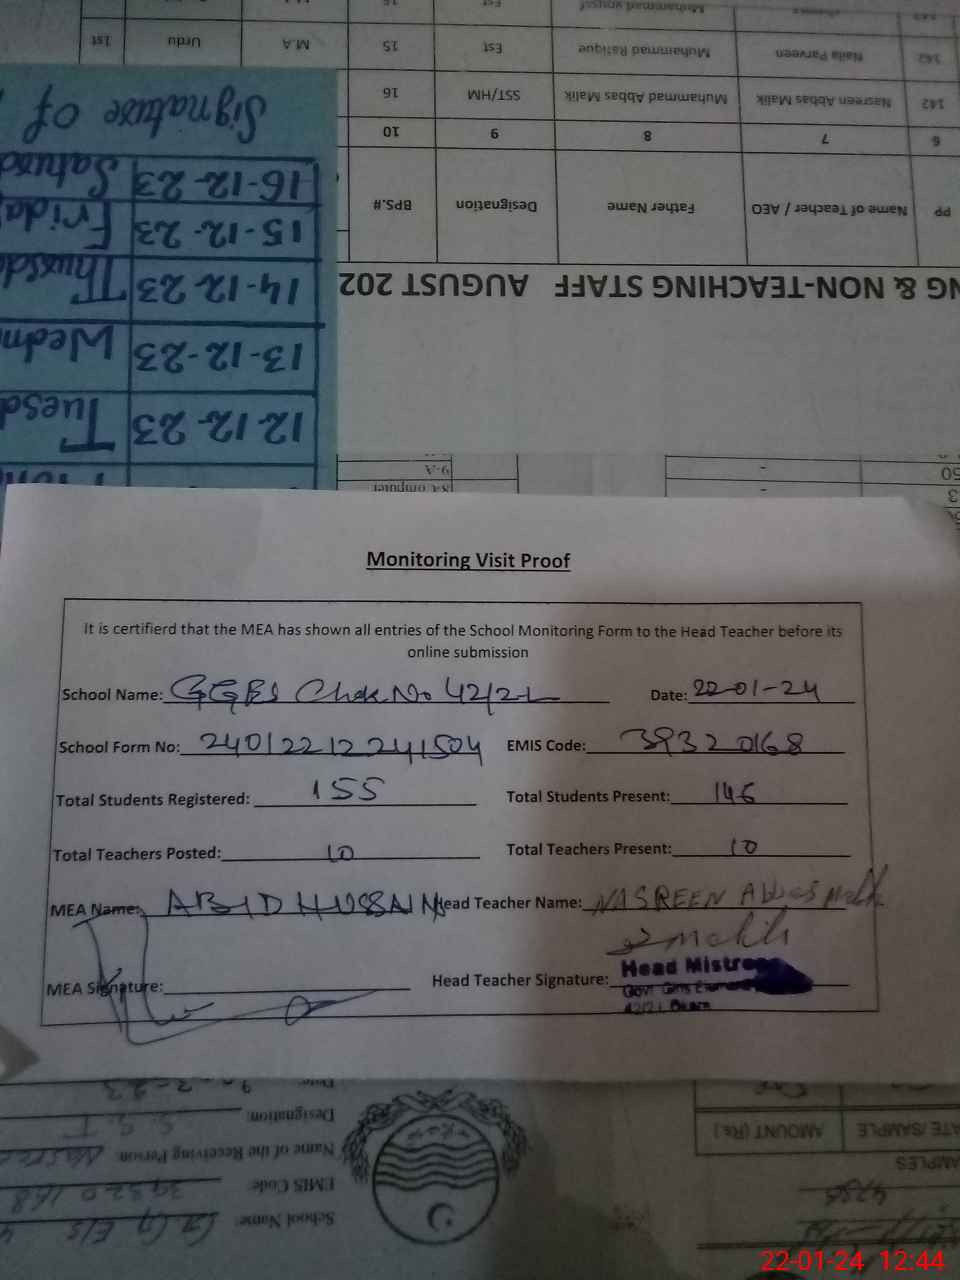 1st Urdu M.A 15 Est Muhammad Rafique Naila Parveen 142
16 SST/HM Muhammad Abbas Malik Nasreen Abbas Malik 142
10 9 8 7 6
BPS.# Designation Father Name Name of Teacher / AEO PP
& NON-TEACHING STAFF AUGUST 202
Signature of
16-12-23
15-12-23 Frida
14-12-23 Thursda
13-12-23 Wedn
12-12-23 Tuesd
9-A
Monitoring Visit Proof
It is certifierd that the MEA has shown all entries of the School Monitoring Form to the Head Teacher before its
online submission
School Name: GGES Chak No 42/2L Date: 22-01-24
School Form No: 24012212241504 EMIS Code: 39320168
Total Students Registered: 155 Total Students Present: 146
Total Teachers Posted: 10 Total Teachers Present: 10
MEA Name: ABID HUSSAIN Head Teacher Name: NASREEN Abbas Malik
Malik
MEA Signature: Head Teacher Signature: Head Mistre
Govt Girls
42/2L
Designation: S.S.T
Name of the Receiving Person:
EMIS Code: 39320168
School Name: GG E/S
AMOUNT (Rs.)
22-01-24 12:44